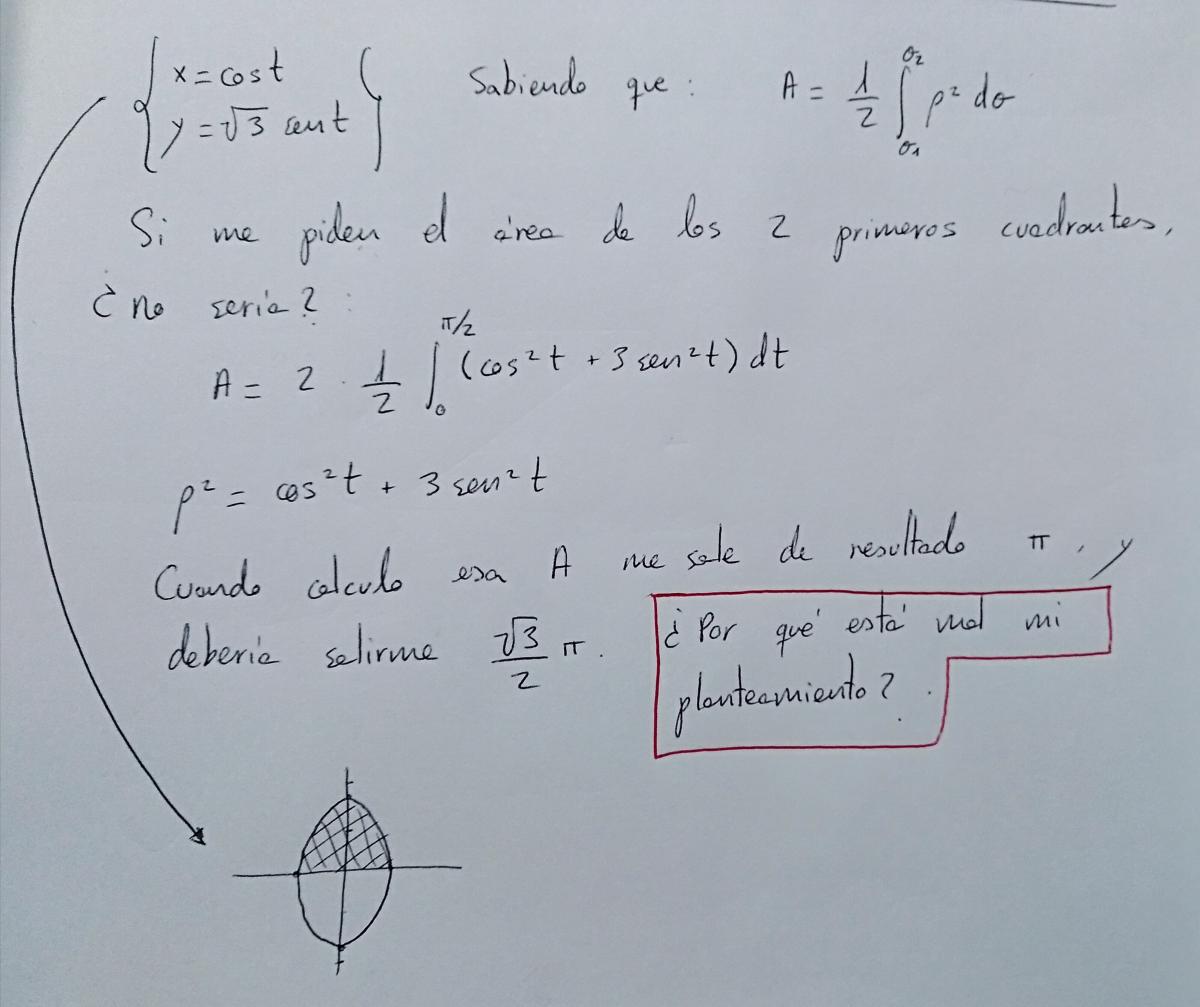 { x = cos t
y = √3 sen t }
Sabiendo que : A = 1/2 ∫_{σ1}^{σ2} ρ² dσ
Si me piden el área de los 2 primeros cuadrantes,
¿ no sería ? :
A = 2 · 1/2 ∫_0^{π/2} (cos² t + 3 sen² t) dt
ρ² = cos² t + 3 sen² t
Cuando calculo esa A me sale de resultado π , y
debería salirme √3/2 π .
¿ Por qué está mal mi
planteamiento ? .